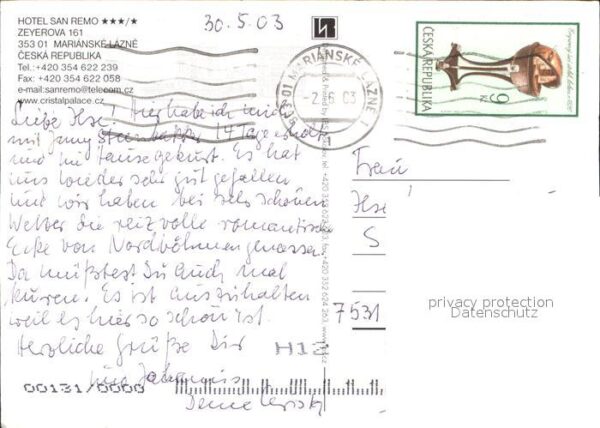 HOTEL SAN REMO ★★★/★
ZEYEROVA 161
353 01 MARIÁNSKÉ LÁZNĚ
ČESKÁ REPUBLIKA
Tel.: +420 354 622 239
Fax: +420 354 622 058
e-mail: sanremo@telecom.cz
www.cristalpalace.cz
30.5.03
Liebe Ilse! Hier habe ich mich
mit Jenny 14 Tage erholt
und gekurt. Es hat
uns wieder sehr gut gefallen
und wir haben bei sehr schönem
Wetter die reizvolle romantische
Ecke von Nordböhmen genossen.
Da müßtest Du auch mal
kuren. Es ist auszuhalten
weil es hier so schön ist.
Herzliche Grüße Dir
Deine
00131/0000
MARIÁNSKÉ LÁZNĚ
03
1
ČESKÁ REPUBLIKA
9 Kč
Frau
Ilse
S
7531
privacy protection
Datenschutz